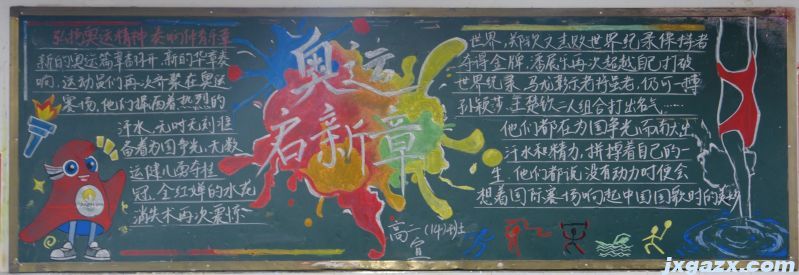 弘扬奥运精神 奏响体育乐章
新的奥运篇章召开,新的华章奏
响,运动员们再次齐聚在奥运
赛场,他们挥洒着热烈的
汗水,无时无刻准
备着为国争光,无数
运健儿勇夺桂
冠,全红婵的水花
消失术再次震惊
奥运
启新章
高二(14)班
宣
世界,郑钦文击败世界纪录保持者
夺得金牌,潘展乐再次超越自己,打破
世界纪录,马龙
孙颖莎、王楚钦二人组合打出名气……
他们都在为国争光而而付出
汗水和精力,拼搏着自己的一
生,他们都说没有动力时便会
想着国际赛场响起中国国歌时的
jxgazx.com